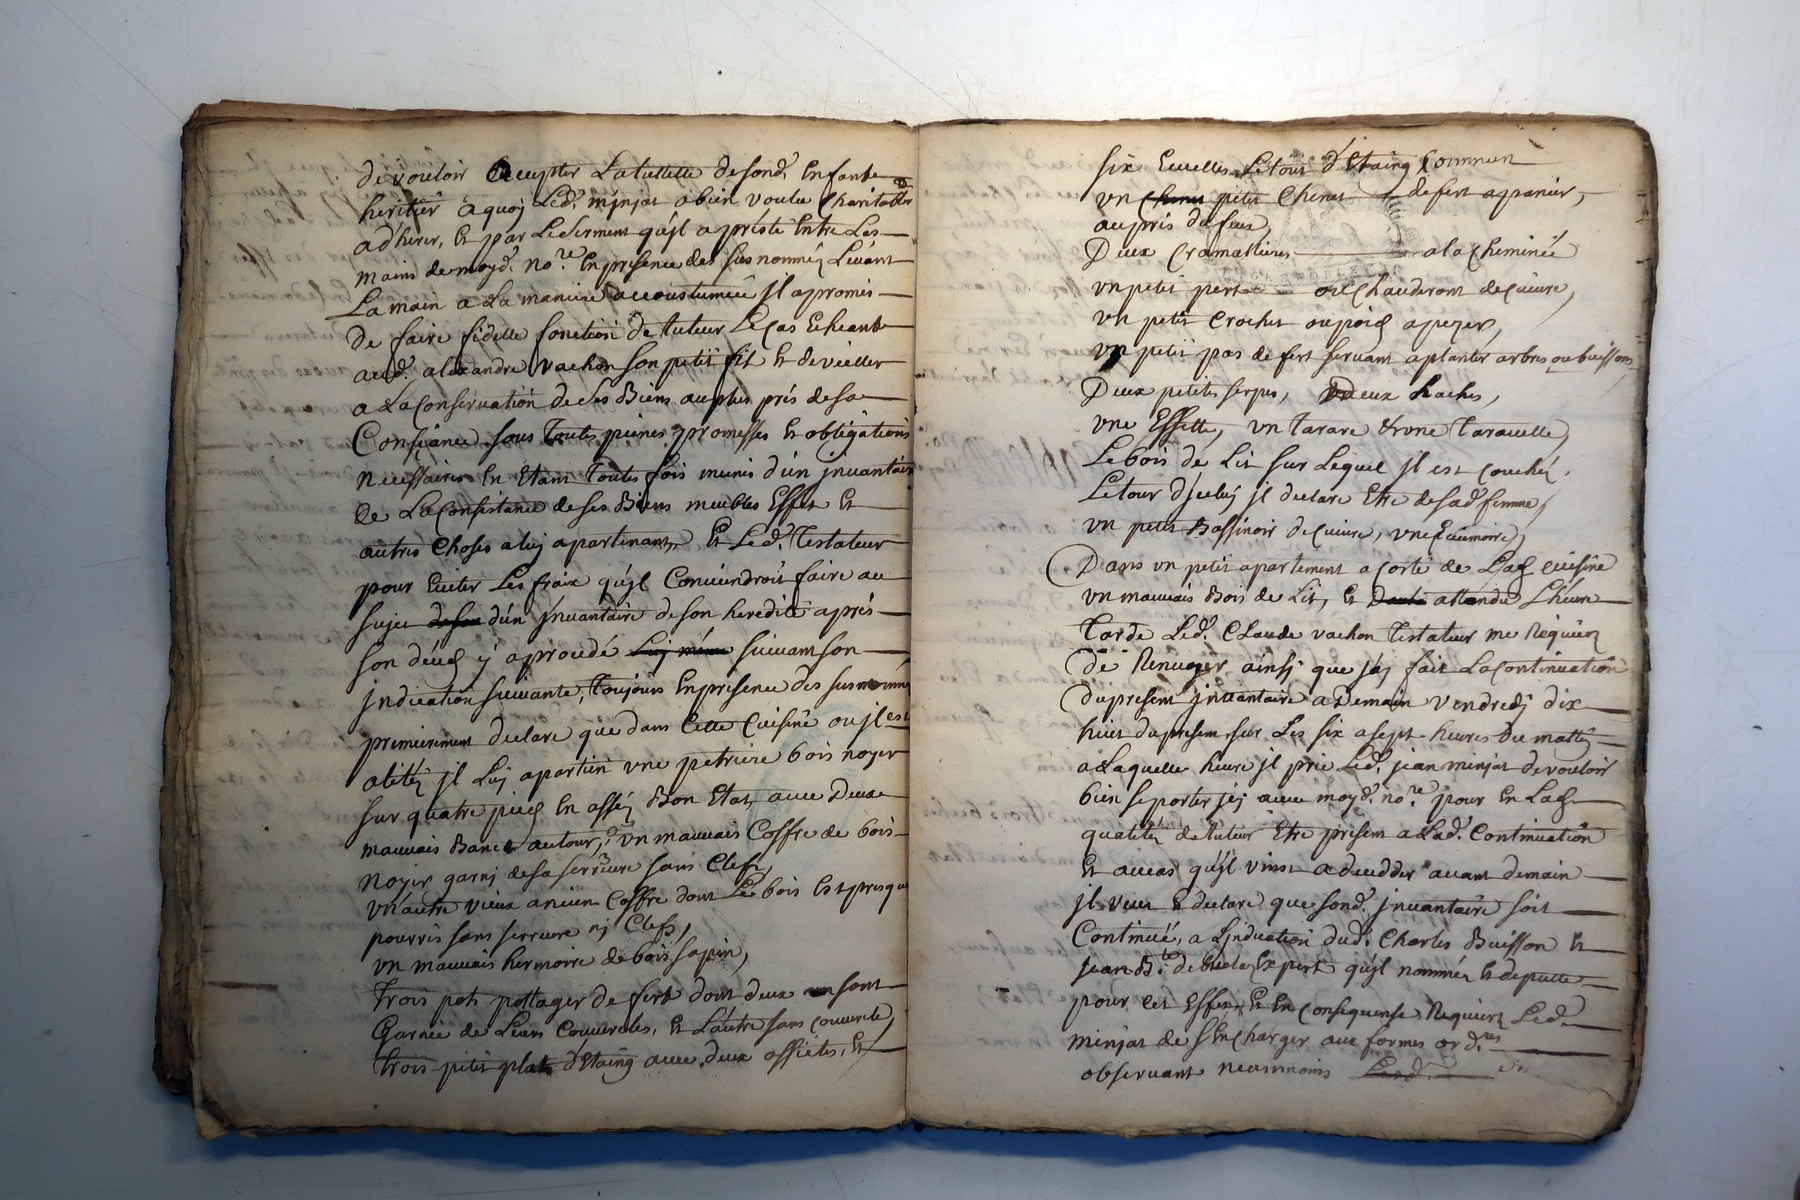 de vouloir accepter La tutelle de sond. Enfant Et
heritier a quoy Led. minjat a bien voulu Charitable
adherer, Et par Le serment qu'jl a présté Entre Les
mains de moyd. no.re En presence des sus nommés Levant
La main a La maniere accoustumée jl a promis
De faire fidelle fonction de tuteur Le Cas Echeant
aud. alexandre vachon son petit fil Et de vieller
a La Conservation de Ses Biens au plus prés de sa
Confiance sous Toutes peines promesses Et obligations
Necessaires En Etant Toutes fois munis d'un jnuantaire
de La Consistance de ses Biens meubles Effet Et
autres Choses a luy apartenant, Et Led. Testateur
pour Euiter Les fraix qu'jl Conuiendroit faire au
sujet d'un jnuantaire de son heredité aprés
son décéd y a procédé suiuant son
jndication suiuante, Toujours En presence des sus nommé
premierement declare que dans Cette Cuisine ou jl est
alité jl Luy apartien une petriere bois noyer
sur quatre pied En assés Bon Etat auec Deux
mauuais Bancs autour, un mauuais Coffre de bois
Noyer garnj de sa serrure sans Clef,
un autre vieux ancien Coffre dont Le bois Est presque
pourris sans serrure nj Clefs,
un mauuais hermoire de bois sapin,
trois pots pottager de fert dont deux sont
Garnie de Leurs Couuercles, Et L'autre sans couuercle,
trois petit plats d'Etaing auec deux assietes, Et
six Ecuelles Le tout d'Etaing Commun
un petit Chenet de fert a panier,
aupris du feux,
Deux Cramallieres a la Cheminée
un petit pert ou Chauderont de cuiure,
un petit Crochet ou poid a pezer,
un petit pas de fert seruant a planter arbres ou buissons
Deux petits serpes, Deux haches,
une Essette, un Tarare & une Tarauelle,
Le bois de Lit sur Lequel jl est couché,
Le tour d'jceluy jl declare Etre de sad. femme,
un petit Bassinoir de cuiure, une Ecumoire,
Dans un petit apartement a Corté de Lad. cuisine
un mauuais Bois de Lit, Et attendu L'heure
Tarde Led. Claude vachon Testateur me Requiert
De Renuoyer ainsj que j'aj fait La Continuation
Du present jnuantaire a Demain vendredj dix
huict du present sur Les six a sept heures du mattin
a Laquelle heure jl prie Led. jean minjat de vouloir
bien se porter jcj auec moyd. no.re pour En Lad.
qualité de tuteur Etre present a Lad. Continuation
Et au cas qu'jl vint a decedder auant demain
jl veut & declare que sond. jnuantaire soit
Continué, a L'jndication dud. Charles Buisson Et
jean B.te Expert qu'jl nommés Et deputte
pour cet Effet, Et En Consequense Requiert Led.
minjat de s'En Charger aux formes ord.res
observant neanmoins